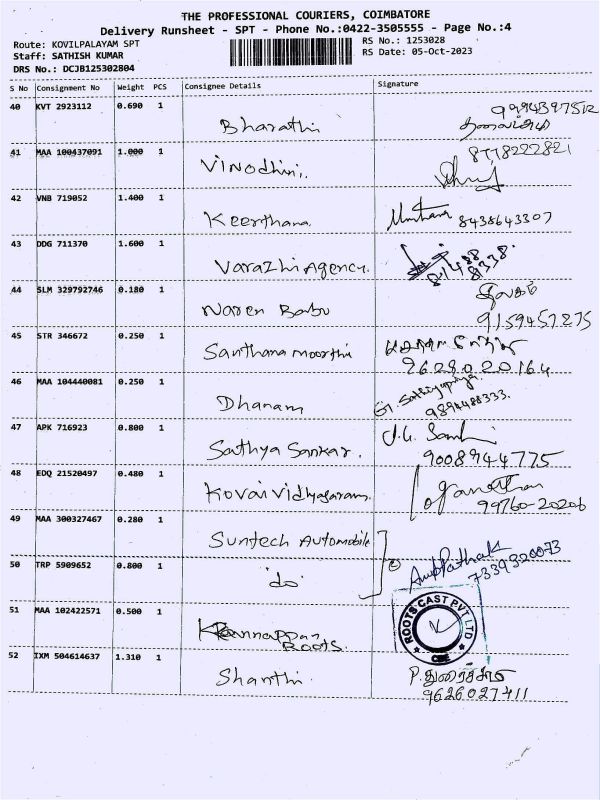 THE PROFESSIONAL COURIERS, COIMBATORE
Delivery Runsheet - SPT - Phone No.:0422-3505555 - Page No.:4
Route: KOVILPALAYAM SPT
RS No.: 1253028
Staff: SATHISH KUMAR
RS Date: 05-Oct-2023
DRS No.: DCJB125302804
S No Consignment No Weight PCS Consignee Details Signature
40 KVT 2923112 0.690 1 Bharathi
41 MAA 100437091 1.000 1 Vinodhini. 8778222821
42 VNB 719052 1.400 1 Keerthana. 8438643307
43 DDG 711370 1.600 1 Varazhi Agency.
44 SLM 329792746 0.180 1 Naren Babu
9159457275
45 STR 346672 0.250 1 Santhana moorthi
9629020164
46 MAA 104440081 0.250 1 Dhanam G. Sathiyapriya.
9894488333.
47 APK 716923 0.800 1 Sathya Sankar.
9008944775
48 EDQ 21520497 0.480 1 Kovai Vidhyasaram.
99760-20206
49 MAA 300327467 0.280 1 Suntech Automobile
50 TRP 5909652 0.800 1 "do" ② Anup Pathak
7339320073
51 MAA 102422571 0.500 1 Kannappan
Roots.
ROOTS CAST PVT LTD
CBE
52 IXM 504614637 1.310 1 Shanthi.
9626027411